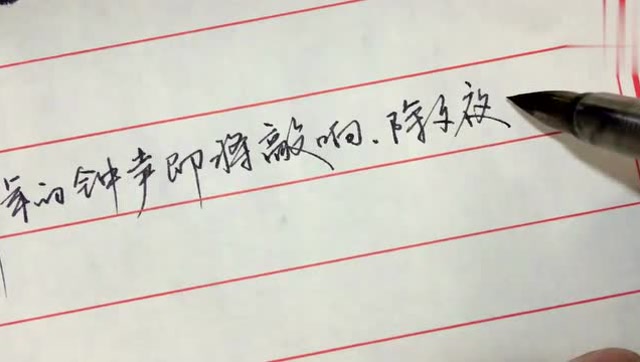 年的钟声即将敲响、除夕夜